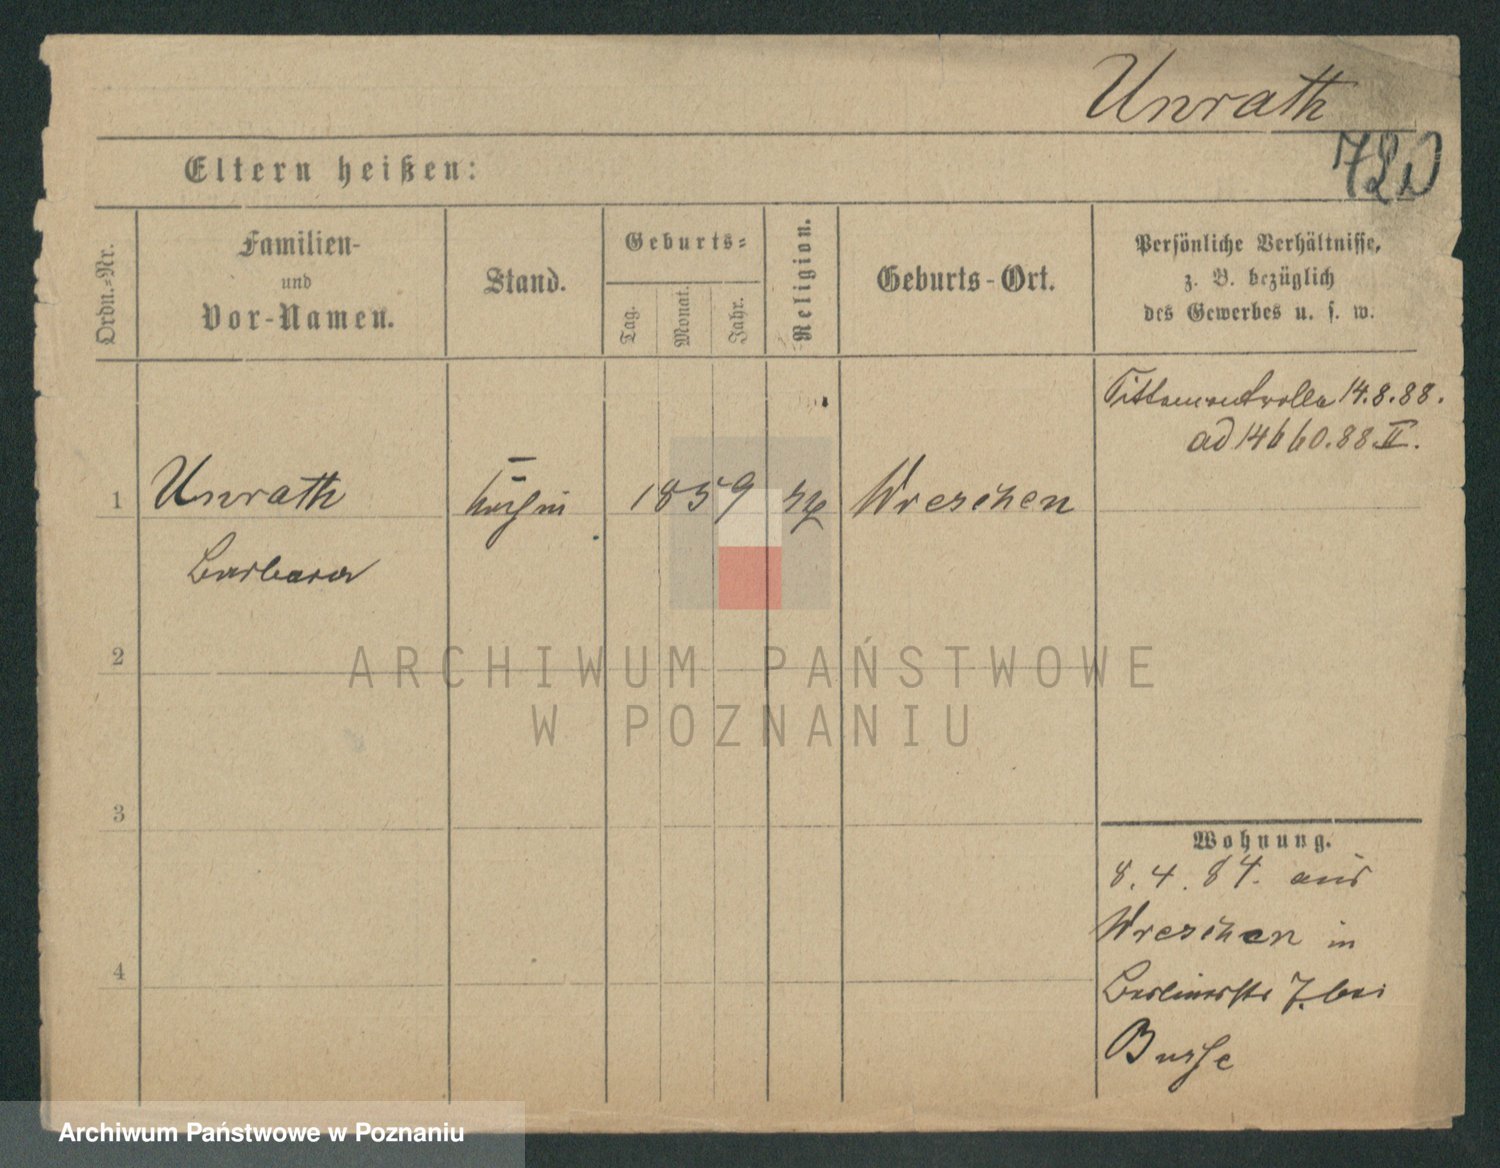 Unrath
720
Eltern heißen:
Ordn.-Nr.
Familien-
und
Vor-Namen.
Stand.
Geburts-
Tag.
Monat.
Jahr.
Religion.
Geburts-Ort.
Persönliche Verhältnisse,
z. B. bezüglich
des Gewerbes u. s. w.
Sittencontrolle 14.8.88.
ad 14660.88.II.
1 Unrath Köchin 1859 Wreschen
Barbara
2
3
4
ARCHIWUM PAŃSTWOWE
W POZNANIU
Wohnung.
8.4.84. aus
Wreschen in
Berlinerstr 7. bei
Busse
Archiwum Państwowe w Poznaniu